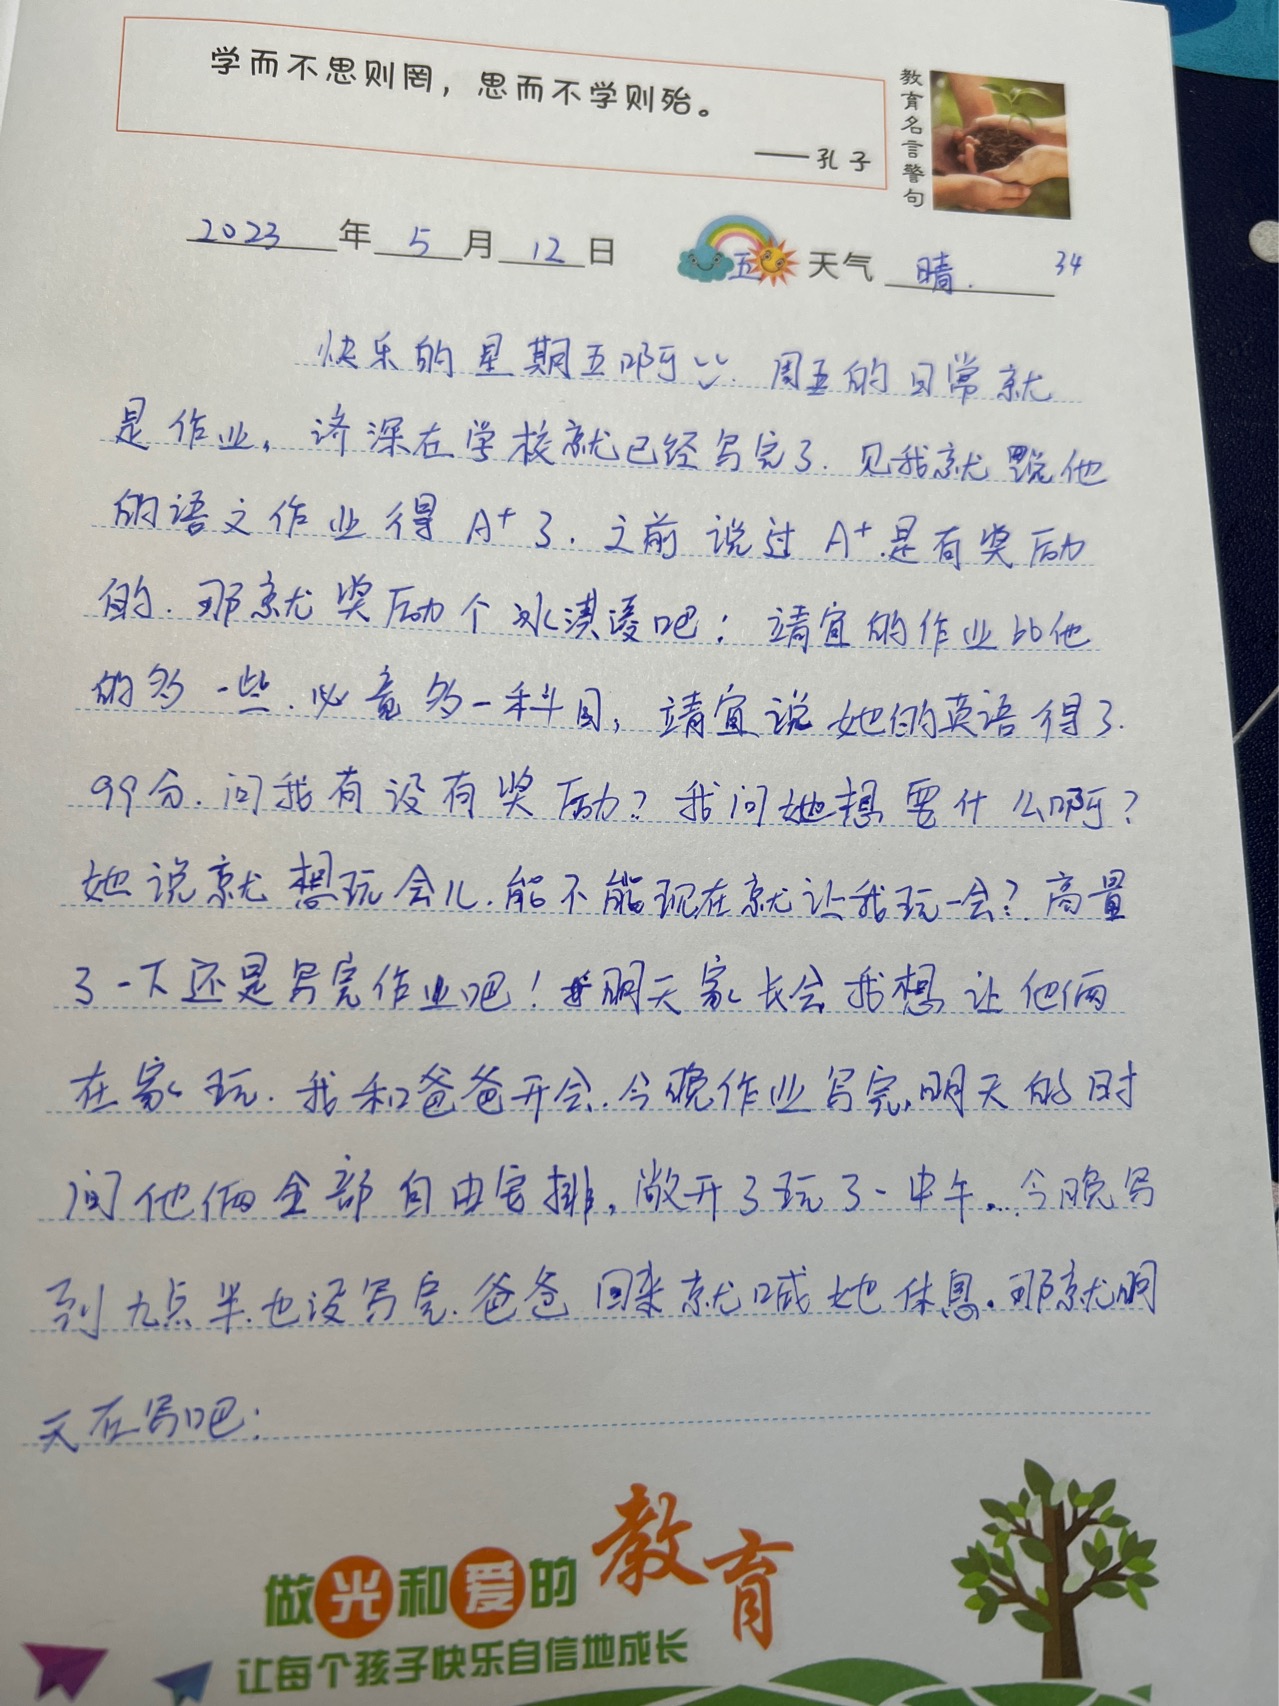 学而不思则罔，思而不学则殆。
——孔子
教育名言警句
2023年5月12日 五 天气 晴. 34
快乐的星期五啊 周五的日常就
是作业，济深在学校就已经写完了.见我就说他
的语文作业得A+了.之前说过A+.是有奖励
的.那就奖励个冰淇凌吧；靖宜的作业比他
的多一些.必竟多一科目，靖宜说她的英语得了.
99分.问我有没有奖励？我问她想要什么啊？
她说就想玩会儿.能不能现在就让我玩一会？商量
了一下还是写完作业吧！明天家长会我想让他俩
在家玩.我和爸爸开会.今晚作业写完,明天的时
间他俩全部自由安排,敞开了玩了一中午...今晚写
到九点半.也没写完.爸爸回来就喊她休息.那就明
天在写吧；
做光和爱的教育
让每个孩子快乐自信地成长